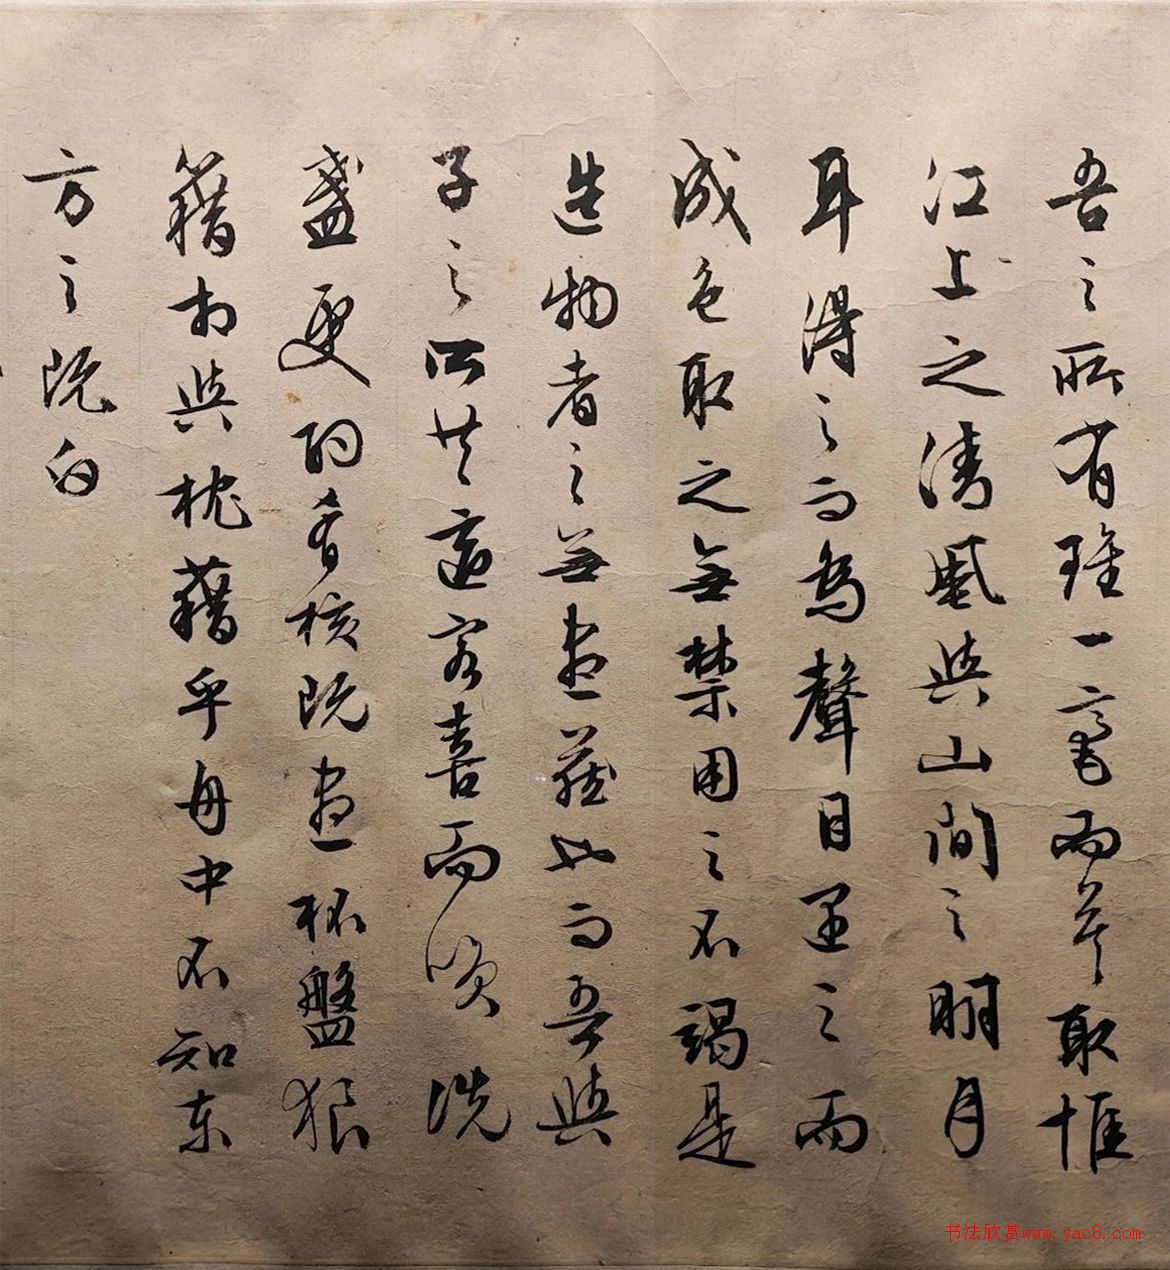 吾之所有雖一毫而莫取惟
江上之清風與山間之明月
耳得之而為聲目遇之而
成色取之無禁用之不竭是
造物者之無盡藏也而吾與
子之所共適客喜而笑洗
盞更酌肴核既盡杯盤狼
籍相與枕藉乎舟中不知東
方之既白
书法欣赏www.yac8.com